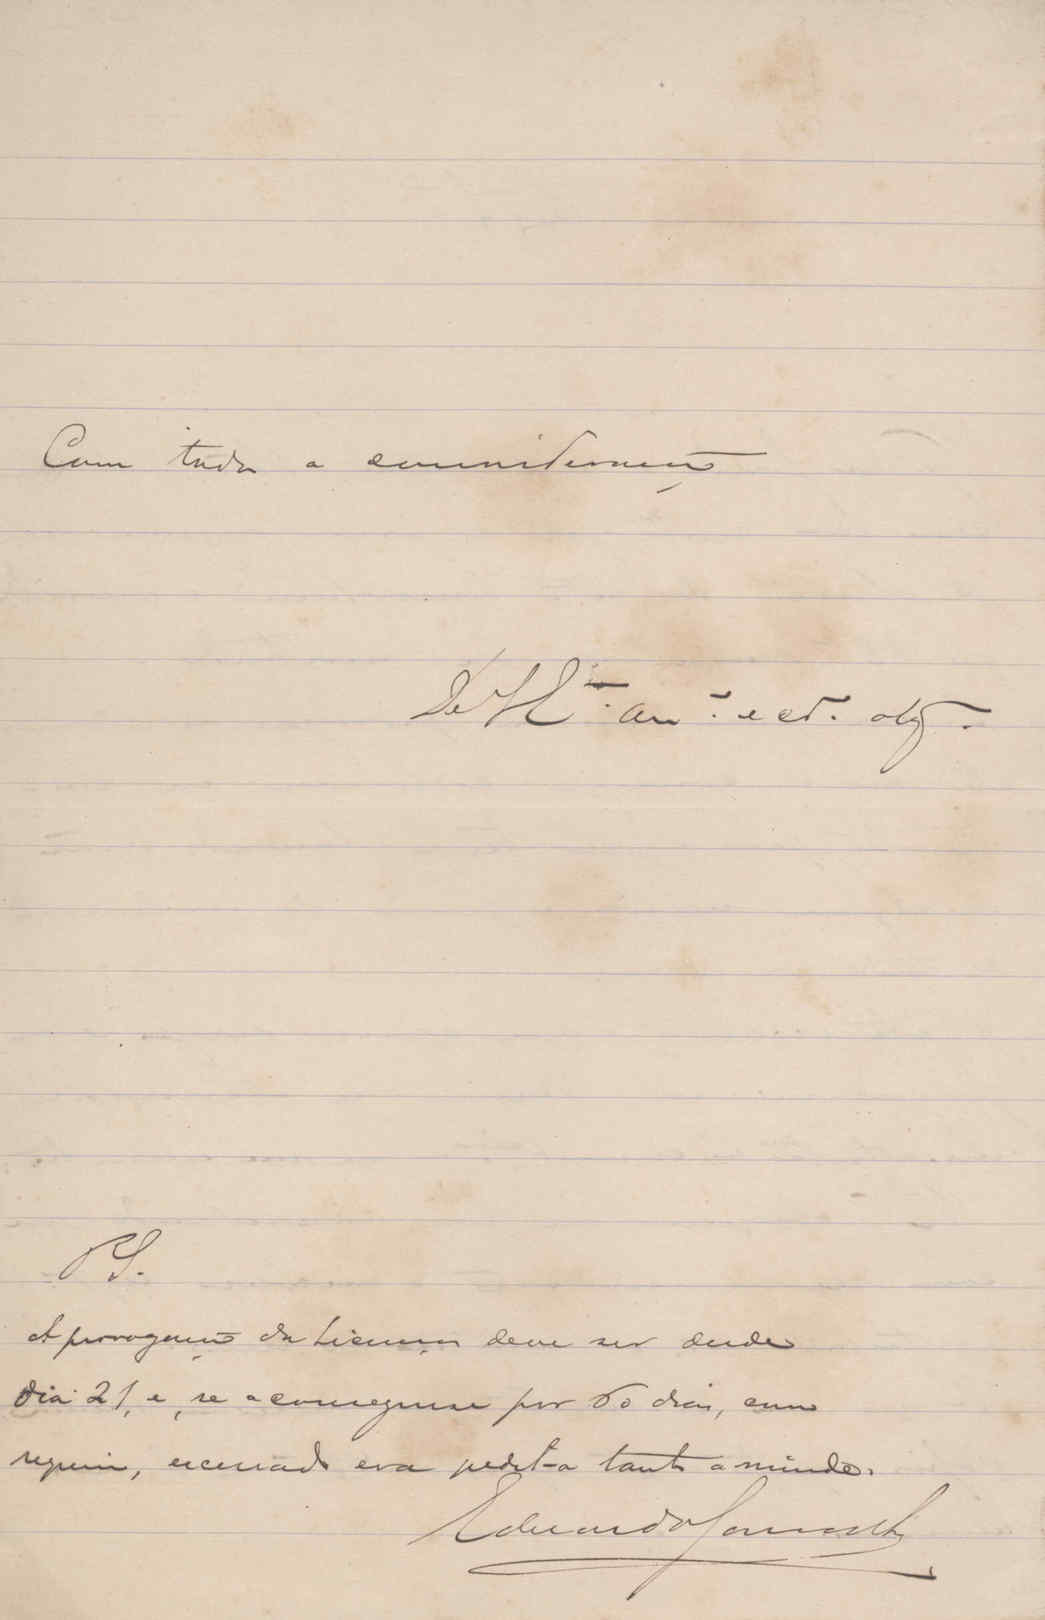 Com toda a consideração
De V. Eª. amº. e cdº. obgº.
PS.
A prorogação da licença deve ser desde
dia 21, e, se a conseguisse por 60 dias, como
requeri, escusado era pedil-a tanto a miude.
Eduardo